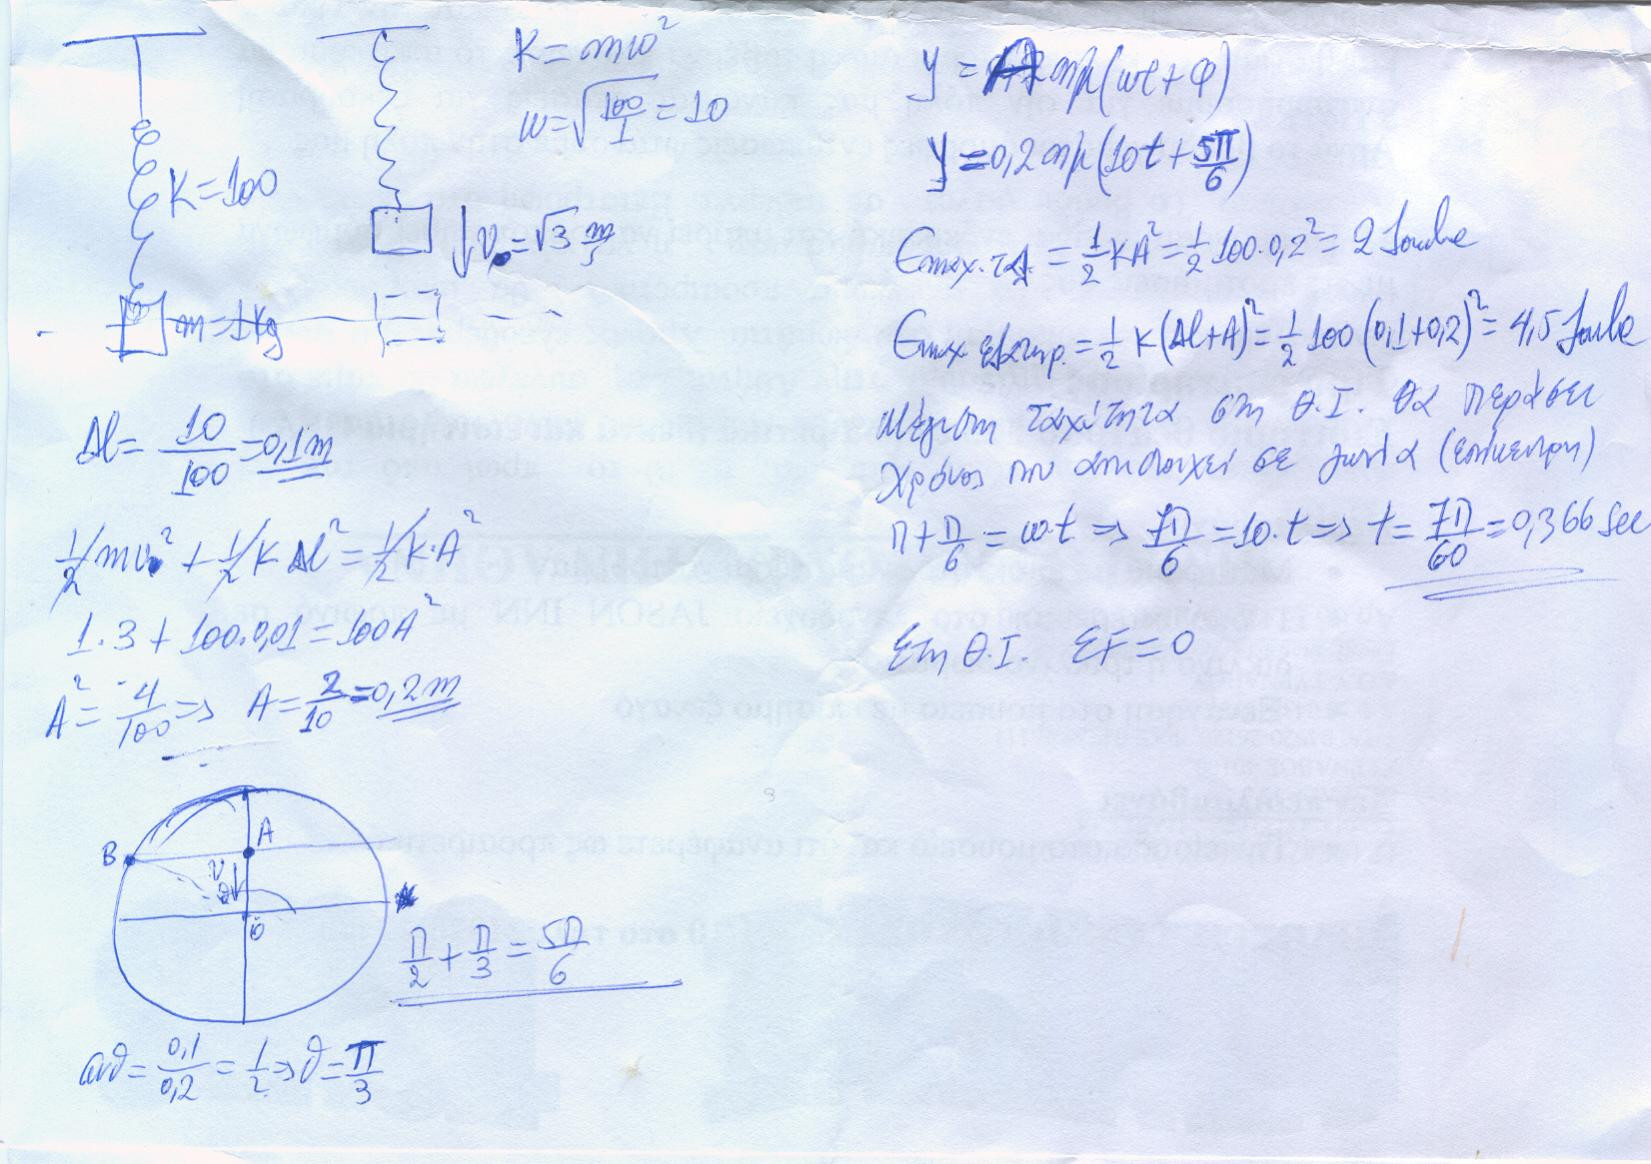 K = mω²
ω = √100/1 = 10
K = 100
↓υ₀ = √3 m/s
m = 1Kg
Δl = 10/100 = 0,1 m
1/2 mυ₀² + 1/2 K Δl² = 1/2 K·A²
1·3 + 100·0,01 = 100A²
A² = 4/100 => A = 2/10 = 0,2 m
A
B
υ
θ
0
π/2 + π/3 = 5π/6
συνθ = 0,1/0,2 = 1/2 => θ = π/3
y = A ημ(ωt + φ)
y = 0,2 ημ(10t + 5π/6)
Εmax.ταλ = 1/2 KA² = 1/2 100·0,2² = 2 Joule
Εmax ελατηρ. = 1/2 K(Δl+A)² = 1/2 100 (0,1+0,2)² = 4,5 Joule
Μέγιστη ταχύτητα στη Θ.Ι. θα περάσει
χρόνος που αντιστοιχεί σε γωνία (επίκεντρη)
π + π/6 = ω·t => 7π/6 = 10·t => t = 7π/60 = 0,366 sec
Στη Θ.Ι. ΣF = 0